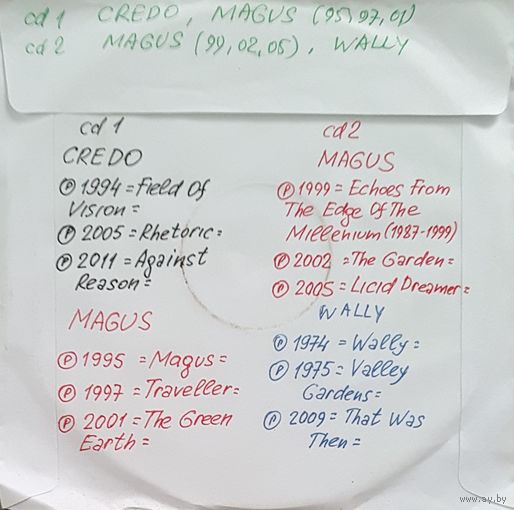 cd 1 CREDO, MAGUS (95, 97, 01)
cd 2 MAGUS (99, 02, 05), WALLY
cd 1
CREDO
Ⓟ 1994 = Field Of
Vision =
Ⓟ 2005 = Rhetoric =
Ⓟ 2011 = Against
Reason =
MAGUS
Ⓟ 1995 = Magus =
Ⓟ 1997 = Traveller =
Ⓟ 2001 = The Green
Earth =
cd 2
MAGUS
Ⓟ 1999 = Echoes From
The Edge Of The
Millenium (1987-1999)
Ⓟ 2002 = The Garden =
Ⓟ 2005 = Licid Dreamer =
WALLY
Ⓟ 1974 = Wally =
Ⓟ 1975 = Valley
Gardens =
Ⓟ 2009 = That Was
Then =
www.ay.by